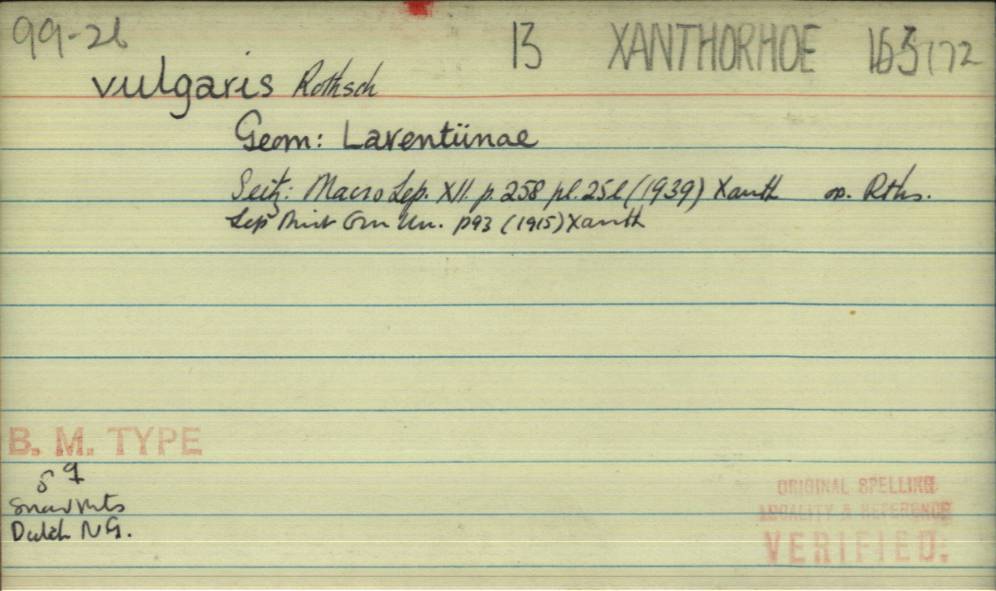 99-26 13 XANTHORHOE 163/172
vulgaris Rothsch
Geom: Larentiinae
Seitz: Macro Lep. XII. p. 258 pl. 25l (1939) Xanth op. Rths.
Lep Brit Orn Un. p93 (1915) Xanth
B. M. TYPE
♂ ♀
Snow Mts
Dutch NG.
ORIGINAL SPELLING
LOCALITY & REFERENCE
VERIFIED.